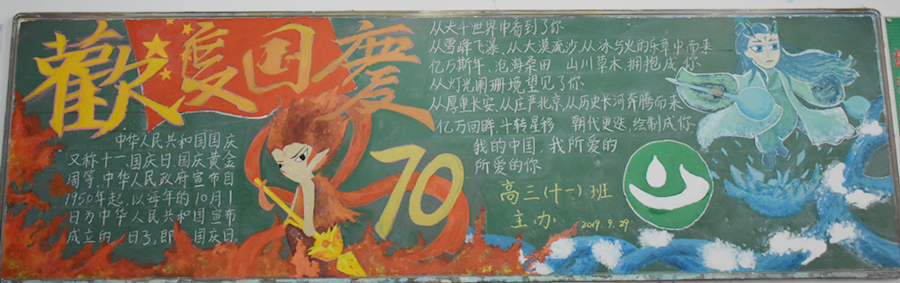 歡度国慶
中华人民共和国国庆
又称十一、国庆日、国庆黄金
周等。中华人民政府宣布自
1950年起，以每年的10月1
日为中华人民共和国宣布
成立的日子，即国庆日
70
从大千世界中看到了你
从雪峰飞瀑，从大漠流沙，从冰与火的乐章中而来
亿万斯年，沧海桑田 山川草木 拥抱成你
从灯光阑珊境望见了你
从属里长安，从庄严北京，从历史长河奔腾而来
亿万回眸，斗转星移 朝代更迭，绘制成你
我的中国，我所爱的
所爱的你
高三(十一)班
主办
2019.9.29